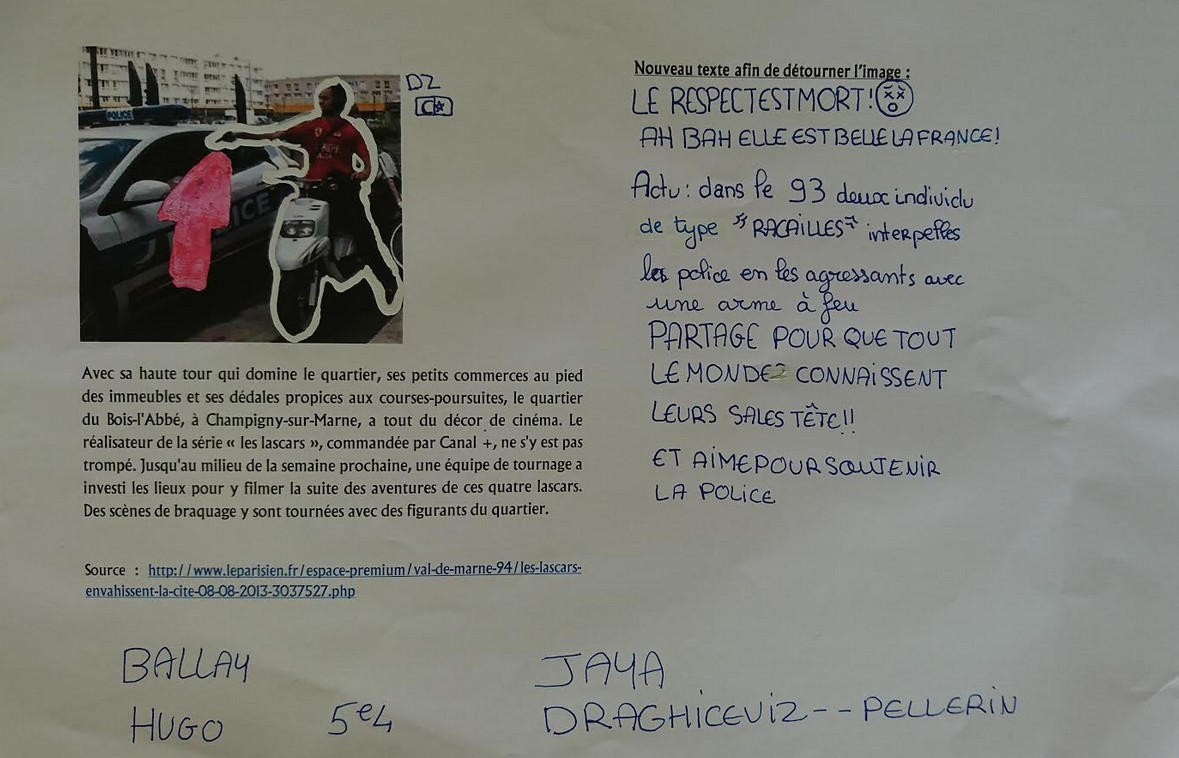 POLICE
POLICE
DZ
Avec sa haute tour qui domine le quartier, ses petits commerces au pied
des immeubles et ses dédales propices aux courses-poursuites, le quartier
du Bois-l'Abbé, à Champigny-sur-Marne, a tout du décor de cinéma. Le
réalisateur de la série « les lascars », commandée par Canal +, ne s'y est pas
trompé. Jusqu'au milieu de la semaine prochaine, une équipe de tournage a
investi les lieux pour y filmer la suite des aventures de ces quatre lascars.
Des scènes de braquage y sont tournées avec des figurants du quartier.
Source : http://www.leparisien.fr/espace-premium/val-de-marne-94/les-lascars-
envahissent-la-cite-08-08-2013-3037527.php
Nouveau texte afin de détourner l'image :
LE RESPECT EST MORT !
AH BAH ELLE EST BELLE LA FRANCE !
Actu : dans le 93 deux individu
de type "RACAILLES" interpelles
les police en les agressants avec
une arme à feu
PARTAGE POUR QUE TOUT
LE MONDE CONNAISSENT
LEURS SALES TÊTE !!
ET AIME POUR SOUTENIR
LA POLICE
BALLAY
HUGO 5e4
JAYA
DRAGHICEVIZ -- PELLERIN